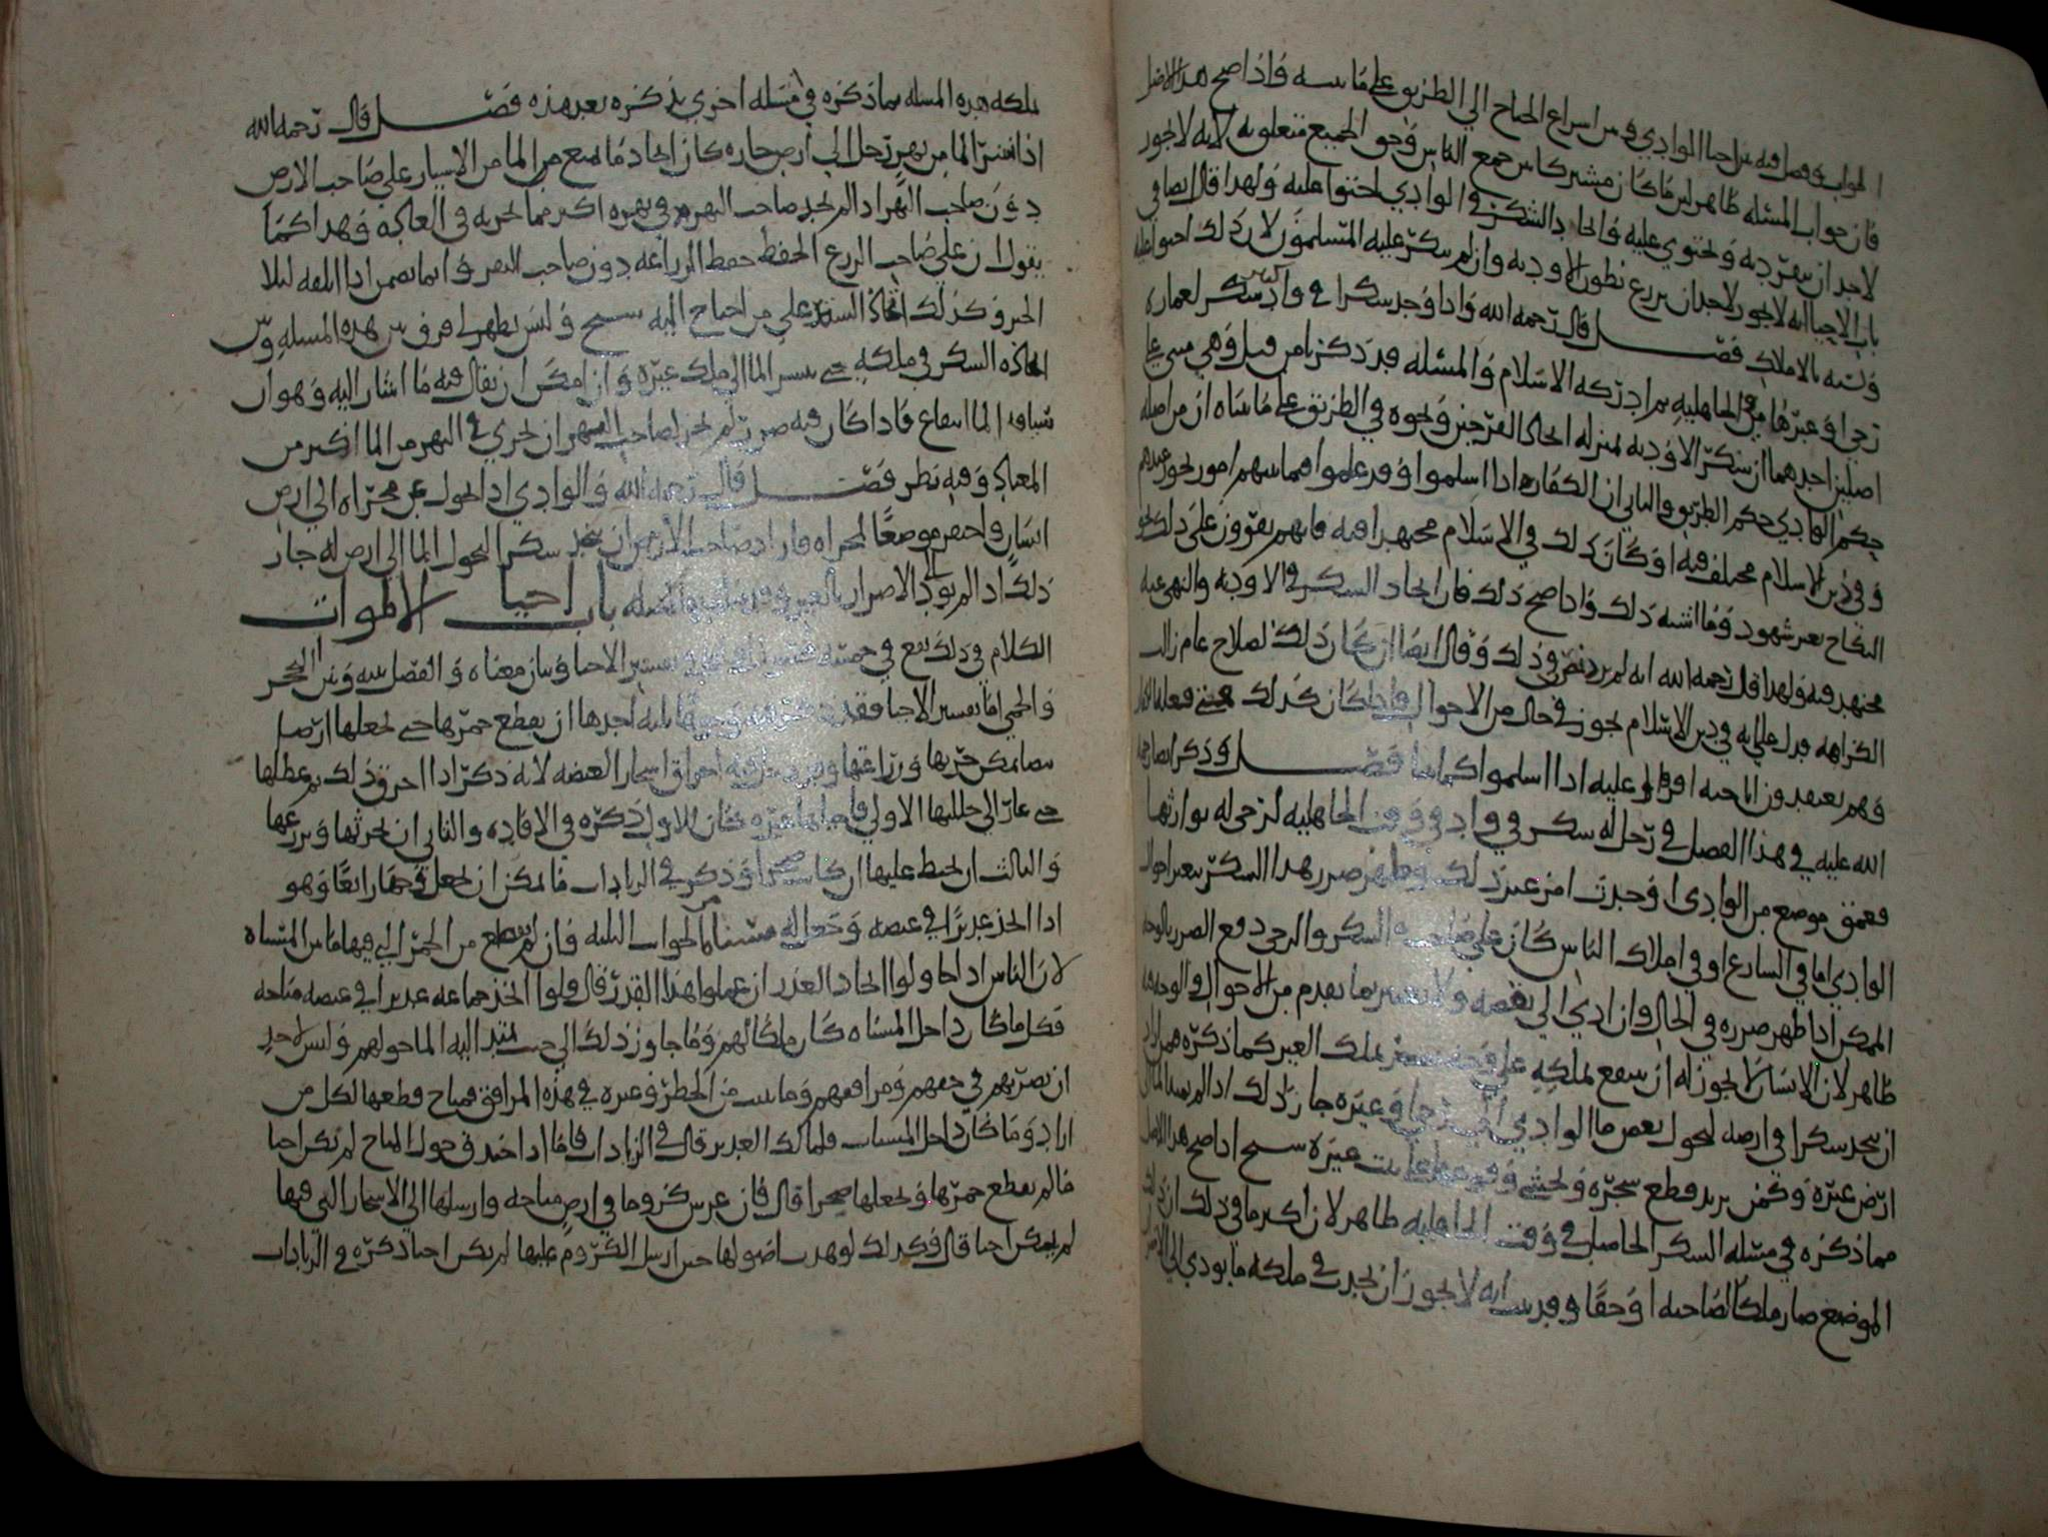 الجواب في فصل فيه من احيا الموادي في من اسراع الجناح الى الطريق على ما بينه فاذا صح هذا الاصل
فان جواب المسئلة ظاهر لان ما كان مشتركا بين جميع الناس وحق الجميع متعلق به لانه لا يجوز
لاحد ان ينفرد به ويحتوي عليه واتخاذ السكر في الوادي احتوا عليه ولهذا قال ايضا في
باب الاحيا انه لا يجوز لاحد ان يزرع بطون الاودية وان لم ينكر عليه المسلمون لان ذلك احتوا عليه
وتشبه بالاملاك فصل قال رحمه الله واذا وجد سكرا في واد كبير سكر لعمارة
رحى او غيرها في الجاهلية ثم ادركه الاسلام والمسئلة قد ذكرنا من قبل وهي مبنية على
اصلين احدهما ان سكر الاودية بمنزلة اتخاذ الفرجين ونحوه في الطريق على ما بيناه ان من اصله
حكم الوادي حكم الطريق والثاني ان الكفار اذا اسلموا وقد عملوا فيما بينهم امور تجوز عندهم
وفي دين الاسلام مختلف فيه او كان ذلك في الاسلام مجتهدا فيه فانهم يقرون على ذلك نحو
النكاح بغير شهود وما اشبه ذلك واذا صح ذلك فان اتخاذ السكر في الاودية والنهي عنه
مجتهد فيه ولهذا قال رحمه الله انه لم يرد نص في ذلك وقال ايضا ان كان ذلك لصلاح عام زالت
الكراهة فدل على انه في دين الاسلام يجوز في حال من الاحوال فاذا كان كذلك فمتى فعله الكفار
وهم يعتقدون اباحته اقروا عليه اذا اسلموا كما بينا فصل وذكر ايضا رحمة
الله عليه في هذا الفصل في رجل له سكر في واد في وقت الجاهلية لرحى له توارثها
فعمق موضع من الوادي او حدث امر غير ذلك وظهر ضرر هذا السكر بتغير احوال
الوادي اما في الشارع او في املاك الناس كان على صاحب السكر والرحى دفع الضرر بالوجه
الممكن اذا ظهر ضرره في الحال وان ادى الى نقضه ولا يعتبر بما تقدم من الاحوال والوجه فيه
ظاهر لان الانسان لا يجوز له ان ينتفع بملكه على وجه يضر بملك الغير كما ذكره فيمن اراد
ان يتخذ سكرا في ارضه ليحول بعض ما الوادي الى رحى او غيره جاز ذلك اذا لم يمتد الما الى
ارض غيره وكمن يريد قطع شجره ويخشى وقوعها على بيت غيره اذا صح هذا الاصل
مما ذكره في مسئلة السكر الحاصل في وقت الجاهلية ظاهر لان اكثر ما في ذلك ان ذلك
الموضع صار ملكا لصاحبه او حقا وقد بينا انه لا يجوز ان يحدث في ملكه ما يودي الى الاضرار
ملكه هذه المسئلة بما ذكره في مسئلة اخرى يذكره بعد هذه فصل قال رحمه الله
اذا انتشر الما من نهر رجل الى ارض جاره كان اتخاذ ما يمنع من الما من الانتشار على صاحب الارض
دون صاحب النهر اذا لم يجد صاحب النهر في نهره اكثر مما يجريه في العادة وهذا كما
يقول ان على صاحب الزرع الحفظ حفظ الزراعة دون صاحب البقر وانما يضمن اذا اتلفه ليلا
الخبر وكذلك اتخاذ الستر على من احتاج اليه صحيح وليس يظهر لي فرق بين هذه المسئلة وبين
اتخاذه السكر في ملكه حتى ينتشر الما الى ملك غيره وان امكن ان يقال فيه ما اشار اليه وهو ان
سياقه الما انتفاع فاذا كان فيه ضرر لم يجز لصاحب النهر ان يجري في النهر من الما اكثر من
المعتاد وفيه نظر فصل قال رحمه الله والوادي اذا تحول عن مجراه الى ارض
انسان واحتفر موضعا لمجراه فاراد صاحب الارض ان يتخذ سكرا ليحول الما الى ارض له جاز
ذلك اذا لم يود الى الاضرار بالغير وقد مضت المسئلة باب احيا الاموات
الكلام في ذلك يقع في خمسة فصول تفسير الاحيا وبيان معناه والفصل بينه وبين التحجر
والحمى اما تفسير الاحيا فقد احدها ان يقطع خمرها حتى يجعلها ارضا
بيضا يمكن حرثها وزراعتها وقد يدخل فيه احراق اشجار الغيضة لانه ذكر اذا احرق ذلك ثم عطلها
حتى عاد الى حالتها الاولى فاحياها غيره كان للاول ذكره في الافادة والثاني ان يحرثها ويزرعها
والثالث ان يحيط عليها ان كانت صحرا وذكر في الزيادات ما يمكن ان يجعل وجها رابعا وهو
اذا اتخذ غديرا في غيضة وجعل له مسناة من الجوانب الثلثة فان لم يقطع من الخمر التي فيها ما بين المسناه
لان الناس اذا حاولوا اتخاذ الغدر ان عملوا هذا القدر قال فلو اتخذ جماعة غديرا في غيضة مباحة
فكل ما كان داخل المسناه كان ملكا لهم وما جاوز ذلك الى حيث يمتد اليه الما حولهم وليس لاحد
ان يضر بهم في حقهم ومرافقهم وما ينبت من الحطر وغيره في هذه المرافق فمباح وقطعها لكل من
اراد وما كان داخل المسنيات فلمالك الغدير قال في الزيادات فاما اذا خندق حول المباح لم يكن احيا
ما لم يقطع خمرها ويجعلها صحرا قال فان غرس كروما في ارض مباحة وارسلها الى الاشجار التي فيها
لم يكن احيا قال وكذلك لو هذب اصولها حين ارسل الكروم عليها لم يكن احيا ذكره في الزيادات